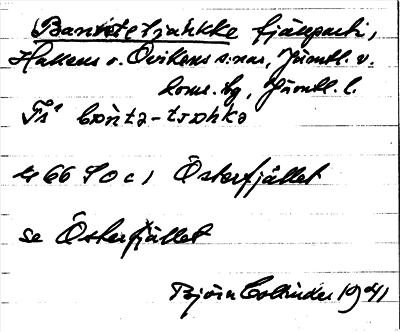 Bantetjahkke fjällparti,
Hallens o. Ovikens s:nar, Jämtl. v.
doms. bg, Jämtl. l.
bɑ̀ntə-tjɑhkə
66 S O c 1 Österfjället
se Österfjället
Björn Collinder 1941